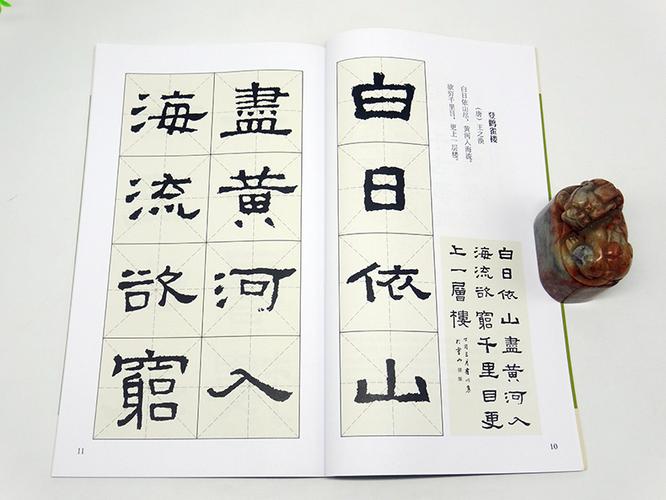 登鹳雀楼
（唐）王之涣
白日依山尽，黄河入海流。
欲穷千里目，更上一层楼。
白日依山盡黃河入
海流欲窮千里目更
上一層樓
白日依山
10
盡黃河入
海流欲窮
11